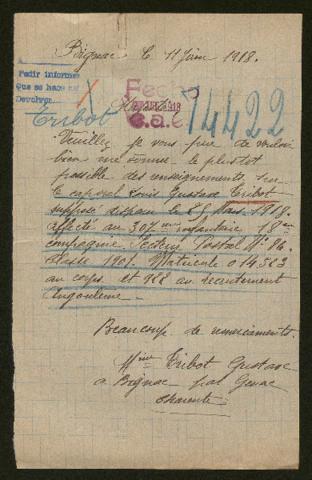 Bignac le 11 Juin 1918.
Pedir informes
Que se hace en
Devolver
Fecho
C.a.c.
Tribot
14422
Veuillez je vous prie de vouloir
bien me donner le plustot
possible des renseignements sur
le caporal Louis Gustave Tribot
supposé disparu le 28 Mars 1918.
affecté au 307me infanterie 18me
compagnie Secteur Postal No 84.
Classe 1901. Matricule 014583
au corps et 988 au recrutement
Angoulême
Beaucoup de remerciements.
Mme Tribot Gustave
a Bignac par Genac
Charente